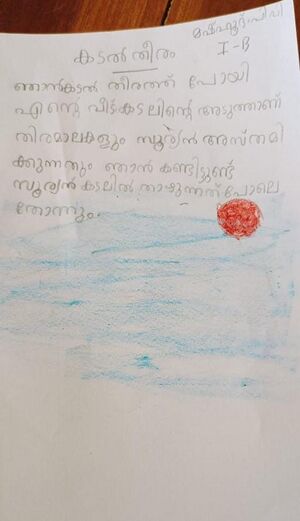 മഷ്ഹൂദ്.പി.വി
I-B
കടൽ തീരം
ഞാൻകടൽ തീരത്ത് പോയി
എന്റെ വീട്കടലിന്റെ അടുത്താണ്
തിരമാലകളും സൂര്യൻ അസ്തമി
ക്കുന്നതും ഞാൻ കണ്ടിട്ടുണ്ട്
സൂര്യൻ കടലിൽ താഴുന്നത് പോലെ
തോന്നും.